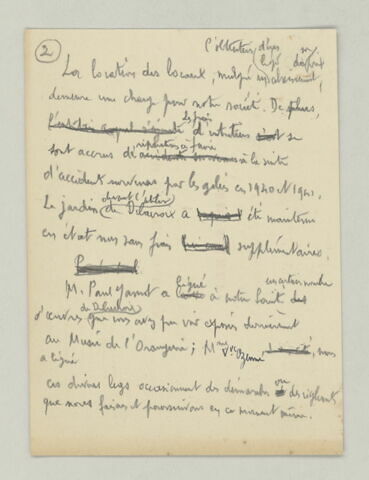 2
l'atelier
La location des locaux, malgré
demeure une charge pour notre société. De plus,
les frais
d'entretien se
réparations à faire
sont accrus de à la suite
d'accidents survenus par les gelées en 1940 et 1941.
devant l'atelier
Le jardin de Delacroix a été maintenu
en état mais sans frais supplémentaires.
M. Paul Jamot a légué à notre Société un certain nombre
de Delacroix
d'œuvres que vous avez pu voir exposées dernièrement
au Musée de l'Orangerie ; Mme nous
a légué
ces divers legs occasionnent des démarches ou des
que nous faisons et poursuivons en ce moment même.